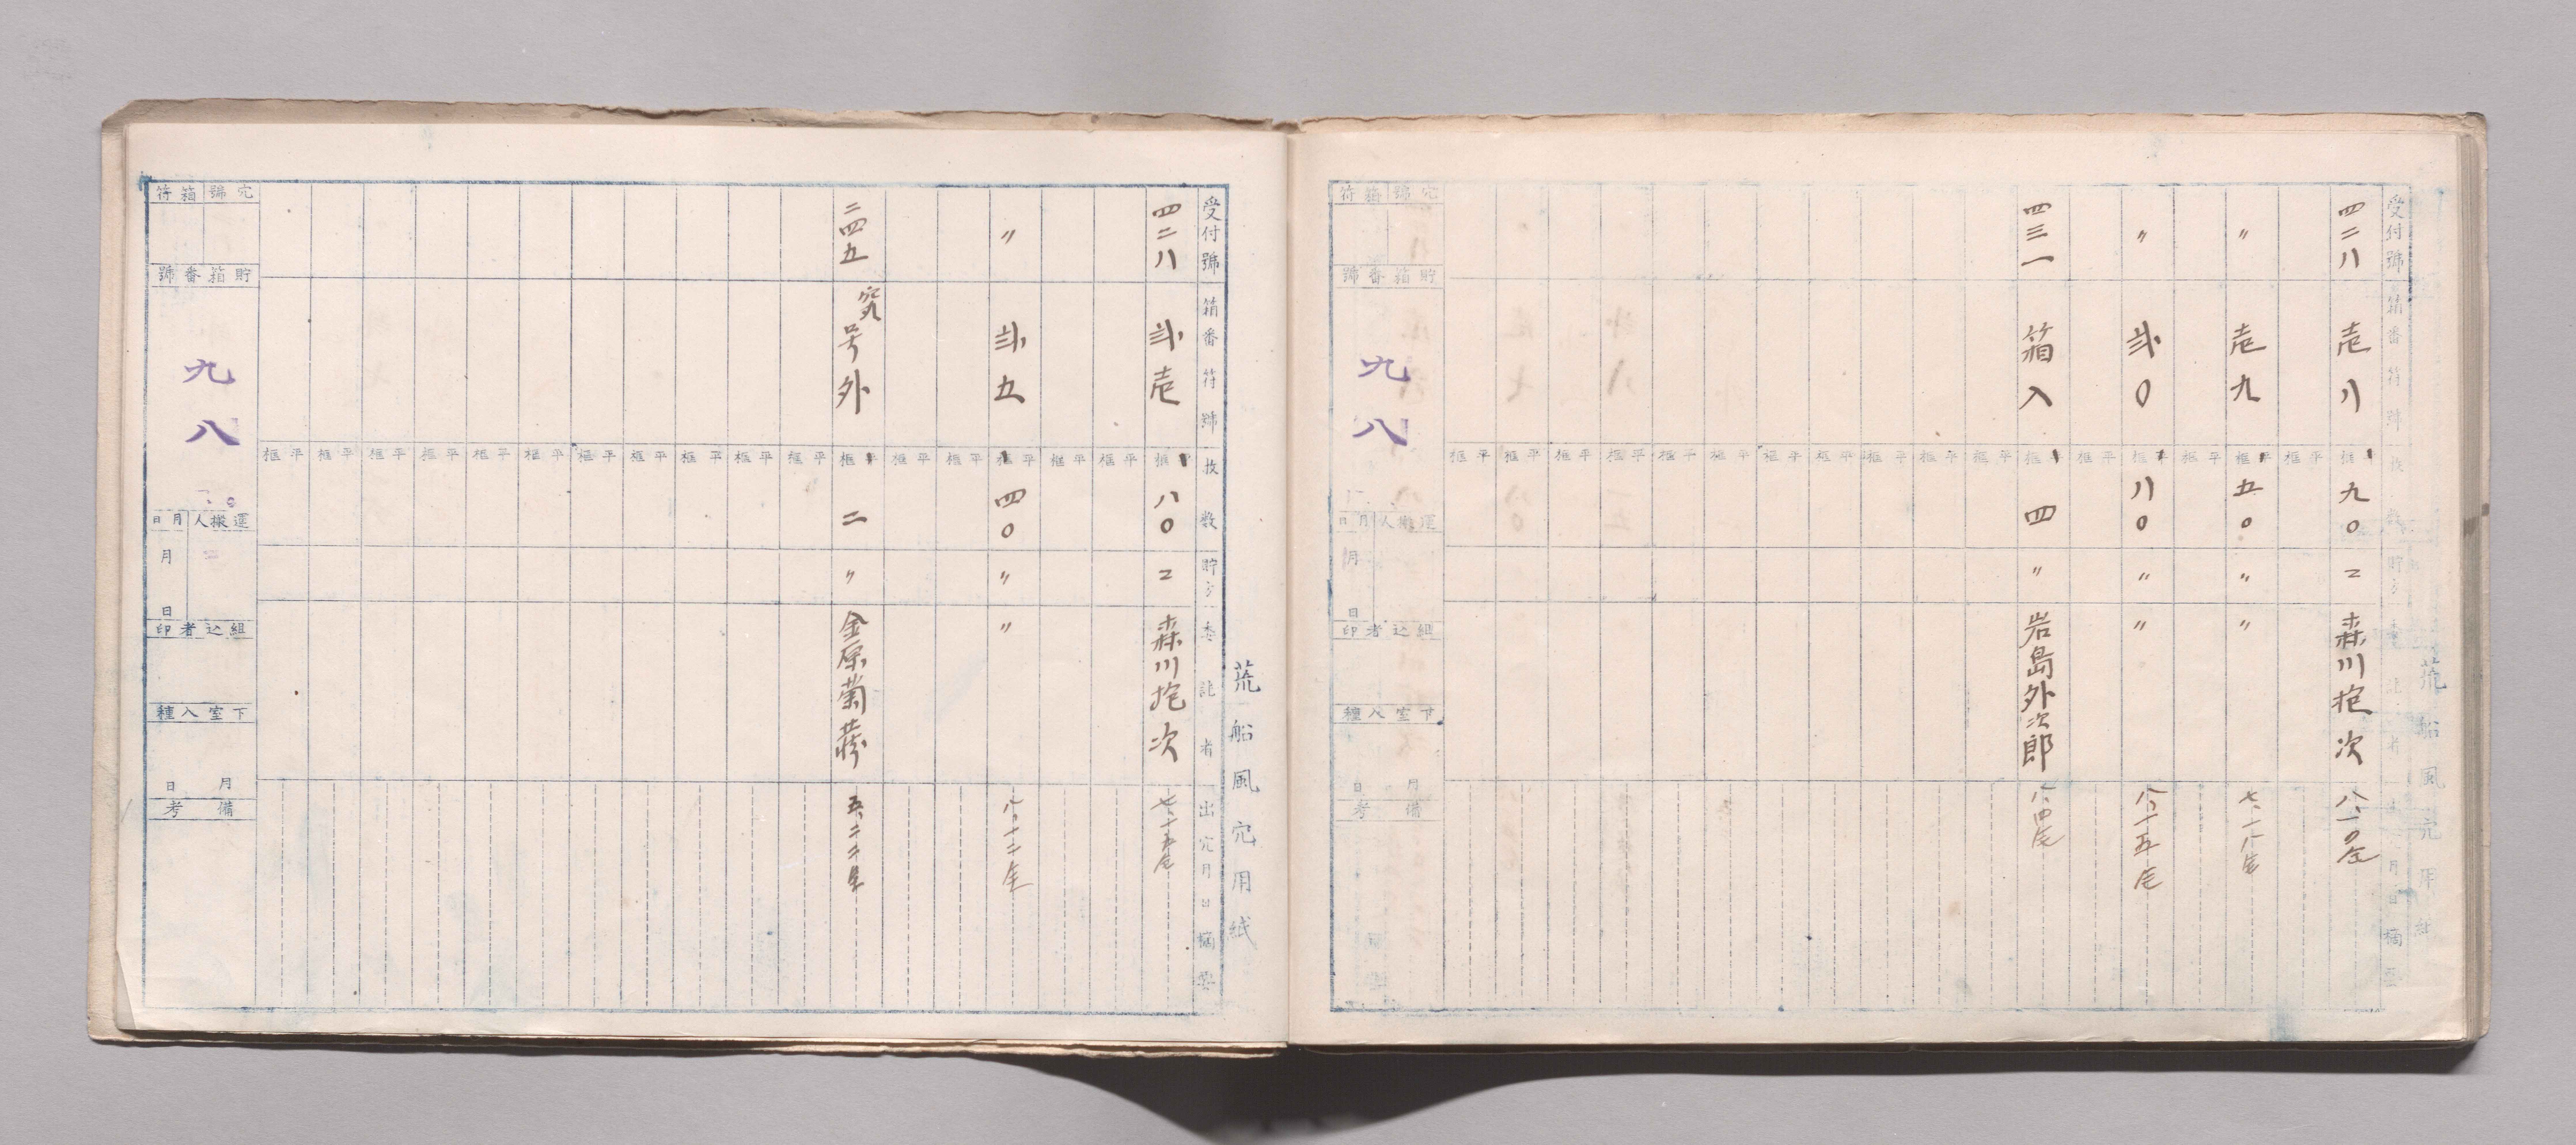 荒船風穴用紙
受付號
箱番符號
枚数
出穴月日
摘要
四二八
壱八
九〇
二
森川抱次
八、一〇出
〃
壱九
五〇
〃
〃
七、一八出
〃
弐〇
八〇
〃
〃
八、十五出
四三一
箱入
四
〃
岩島外次郎
八、四出
平框
穴號
箱符
貯箱番號
九八
運搬人
月日
月
日
組込者印
下室入種
月
日
備考
荒船風穴用紙
受付號
箱番符號
枚数
貯
委託者
出穴月日
摘要
四二八
弐壱
八〇
二
森川抱次
七、十五出
〃
弐五
四〇
〃
〃
八、十二出
二四五
号外
二
〃
金原菊蔣
五、二二
平框
穴號
箱符
貯箱番號
九八
運搬人
月日
月
日
組込者印
下室入種
月
日
備考